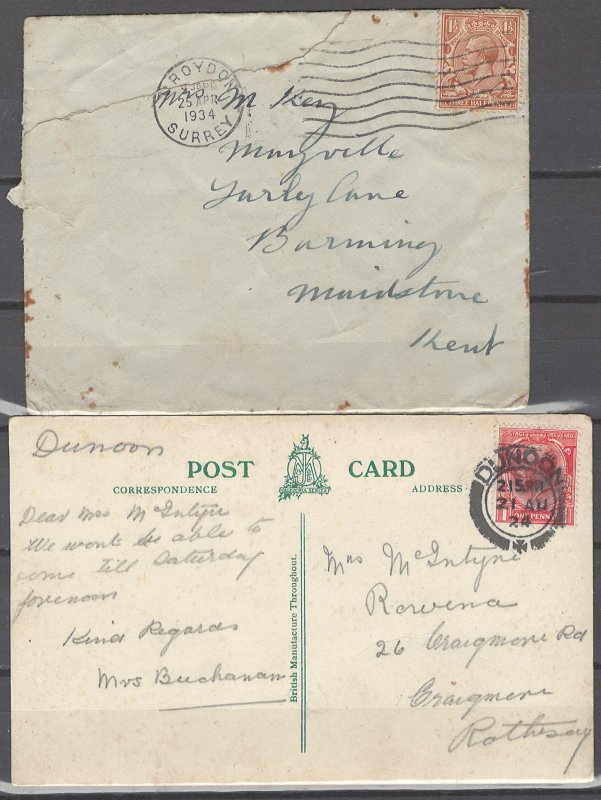 CROYDON
3.30PM
25 APR
1934
SURREY
1½ 1½
THREE HALFPENCE
Mrs M Key
Maryville
Farley Lane
Barming
Maidstone
Kent
Dunoon
POST CARD
CORRESPONDENCE
ADDRESS
POSTAGE REVENUE
DUNOON
2.15 PM
21 AU
24
ONE PENNY
Dear Mrs McIntyre
We wont be able to
come till Saturday
forenoon
Kind Regards
Mrs Buchanan
British Manufacture Throughout.
Mrs McIntyre
Rowena
26 Craigmore Rd
Craigmore
Rothesay